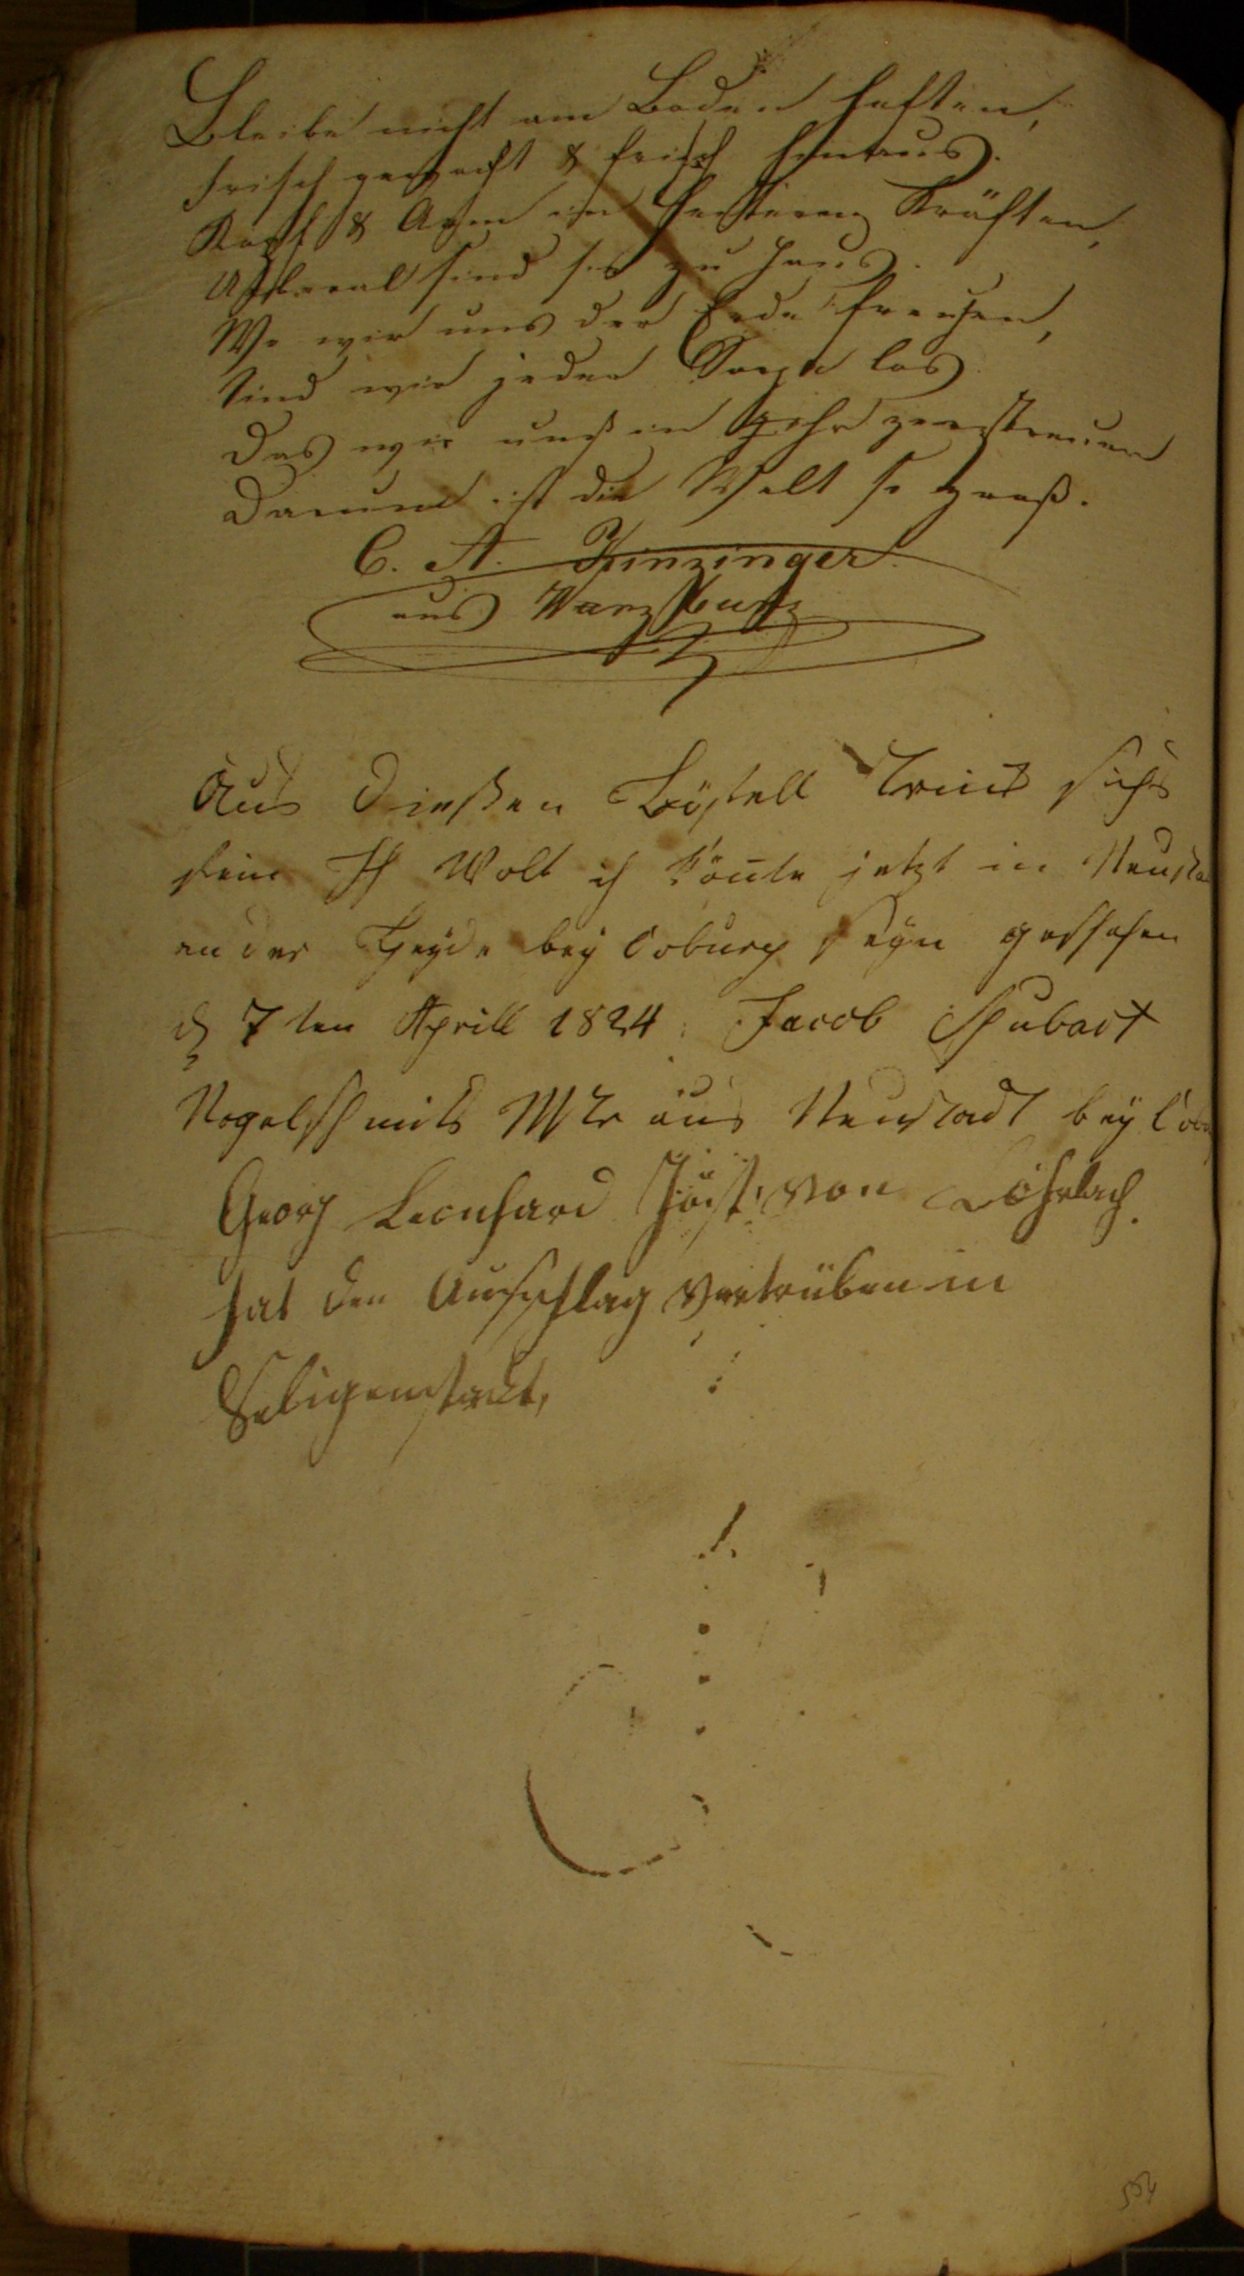 Bleibe nicht am Boden heften,
frisch gewacht & frisch hinaus.
Kopf & Arm in heiteren Kräften,
Ueberall sind sie zu Haus.
Wo wir uns der Erde freuhen,
Sind wir jeder Sorge los
Das wir uns in Ihr zerstreuen
Darum ist die Welt so groß.
C. A. Kinzinger
aus
Aus Dießen Löffell Trinkt sichs
fein Ich Wolt ich könte jetzt in Neusta
an der Heyde bey Coburg seyn geschehen
d 7ten Aprill 1824 Jacob Schubart
Nagelschmidts Mstr aus Neustadt bey Cob
Georg Leonhard Jöst von Löhrbach
hat den Aufschlag vertrüben in
Seligenstadt,